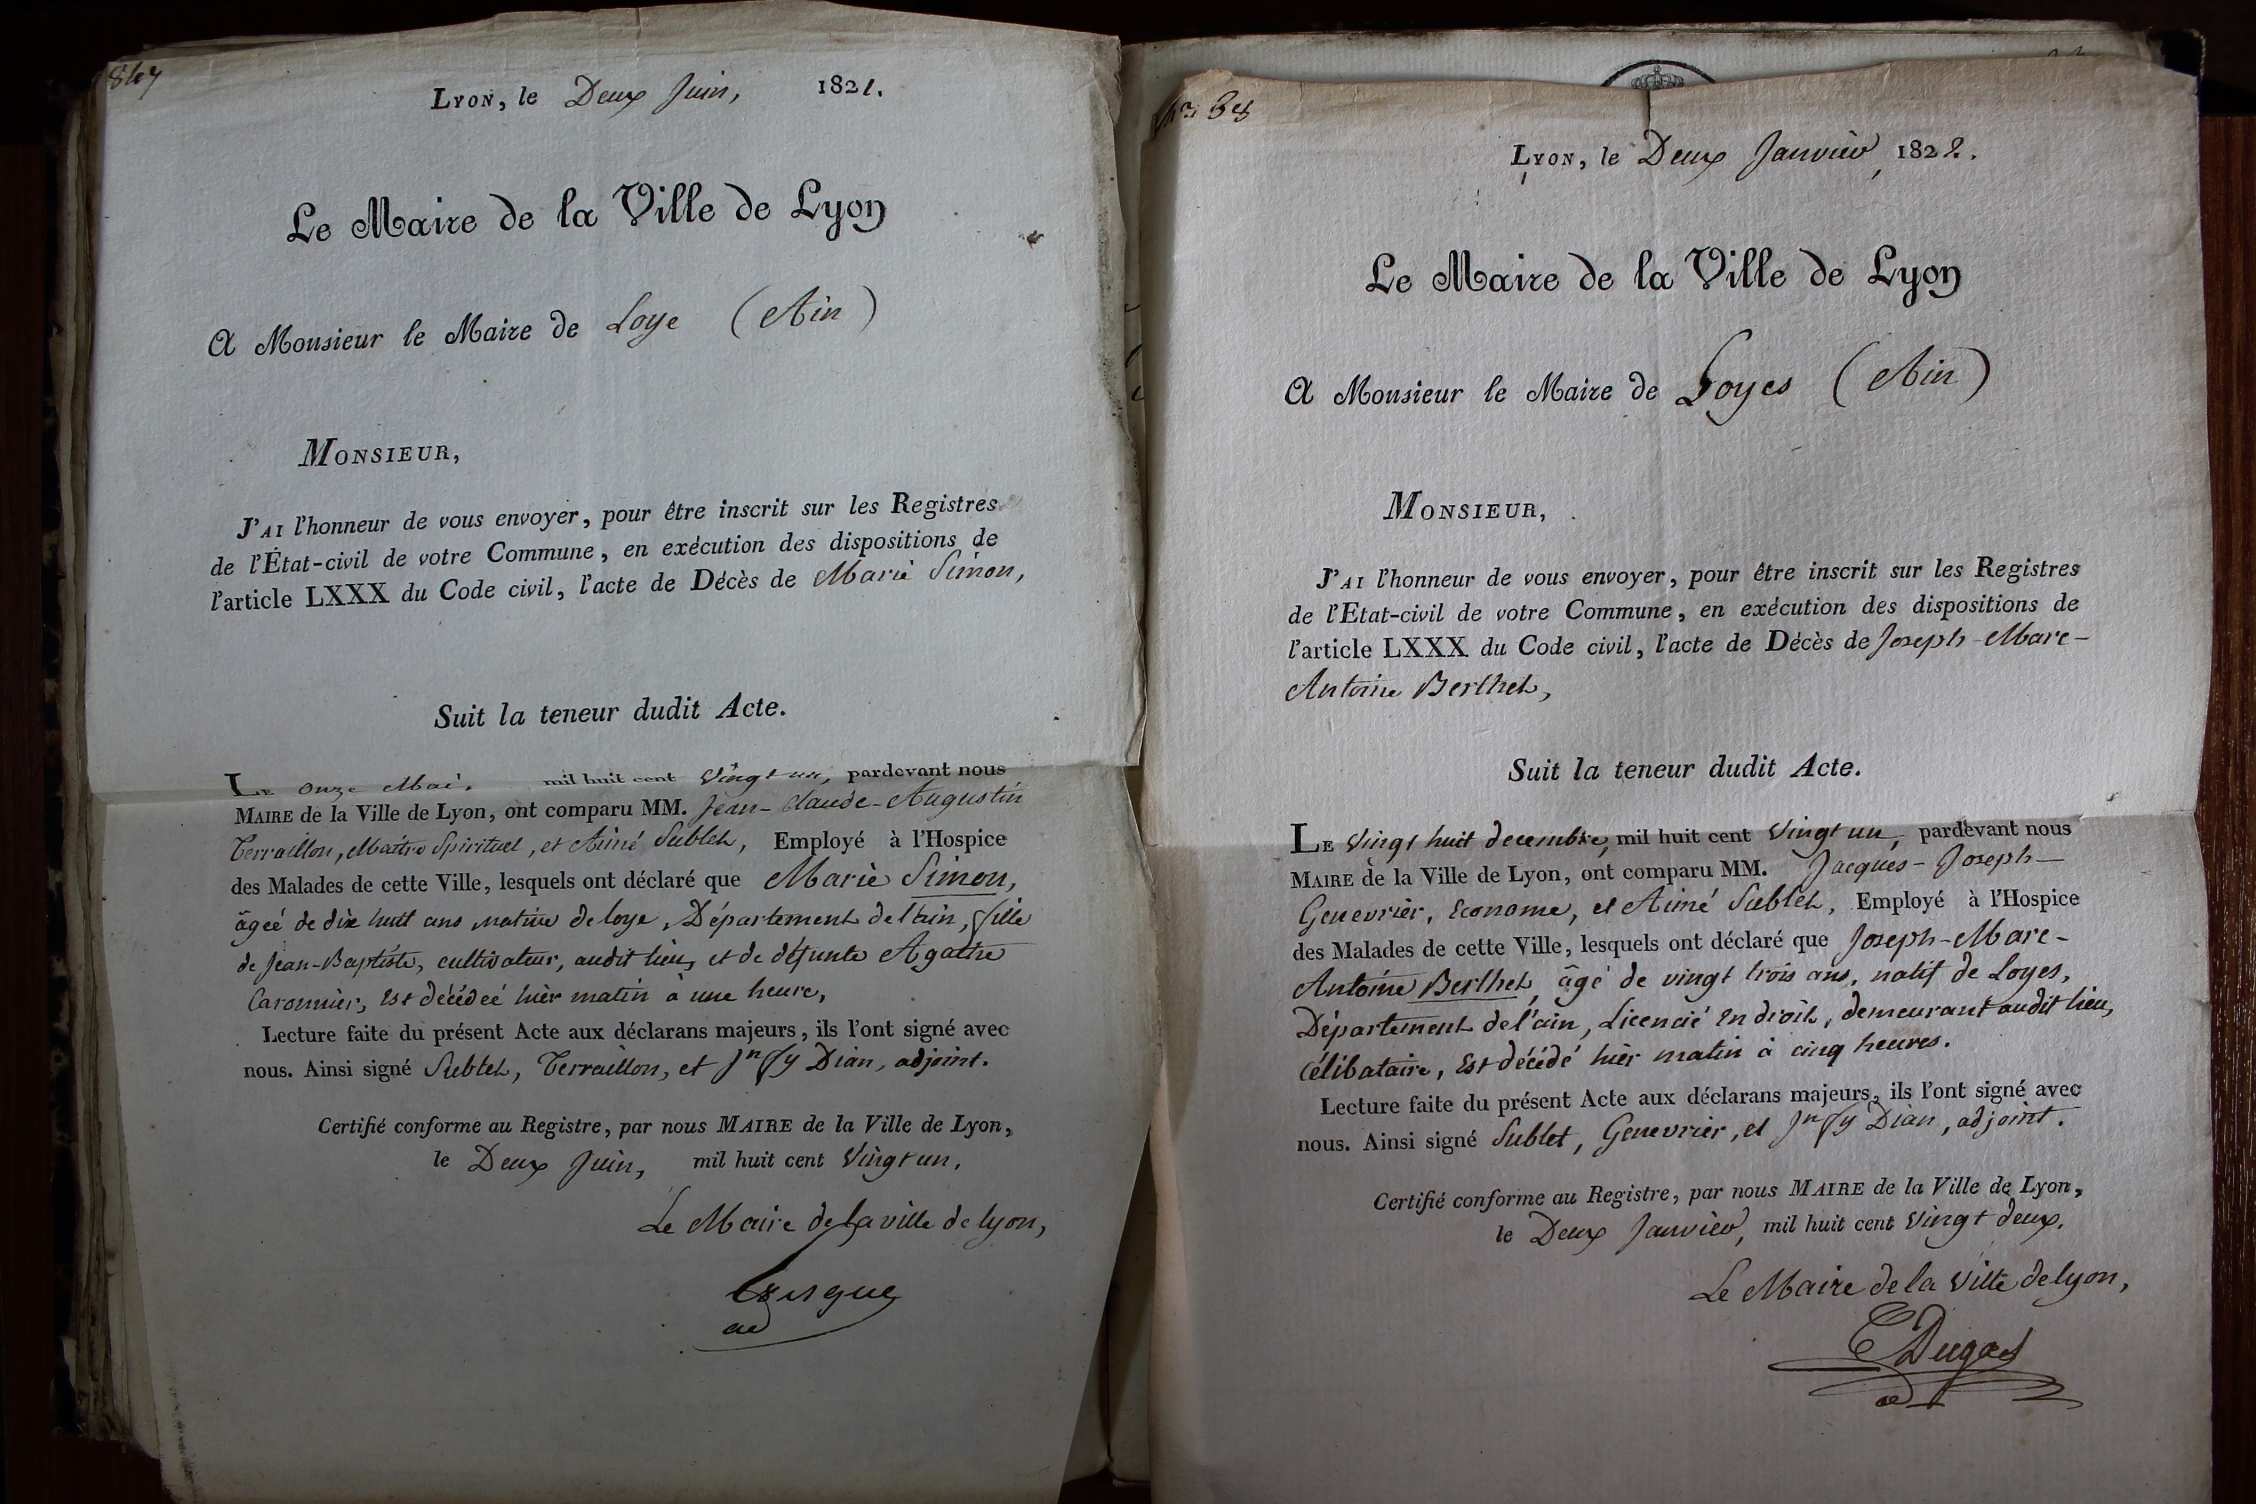 847
Lyon, le Deux Juin, 1821.
Le Maire de la Ville de Lyon
A Monsieur le Maire de Loye (Ain)
Monsieur,
J'ai l'honneur de vous envoyer, pour être inscrit sur les Registres
de l'État-civil de votre Commune, en exécution des dispositions de
l'article LXXX du Code civil, l'acte de Décès de Marie Simon,
Suit la teneur dudit Acte.
Le onze Mai, mil huit cent Vingt un, pardevant nous
Maire de la Ville de Lyon, ont comparu MM. Jean-Claude-Augustin
Terraillon, Maitre Spirituel, et Aimé Sublet, Employé à l'Hospice
des Malades de cette Ville, lesquels ont déclaré que Marie Simon,
âgeé de dix huit ans, native de loye, Département de l'ain, fille
de Jean-Baptiste, cultivateur, audit lieu, et de défunte Agathe
Caronnier, Est décédeé hier matin à une heure,
Lecture faite du présent Acte aux déclarans majeurs, ils l'ont signé avec
nous. Ainsi signé Sublet, Terraillon, et Jn fy Dian, adjoint.
Certifié conforme au Registre, par nous Maire de la Ville de Lyon,
le Deux Juin, mil huit cent Vingt un.
Le Maire de la ville de lyon,
ad
No 38
Lyon, le Deux Janvier, 1822.
Le Maire de la Ville de Lyon
A Monsieur le Maire de Loyes (Ain)
Monsieur,
J'ai l'honneur de vous envoyer, pour être inscrit sur les Registres
de l'Etat-civil de votre Commune, en exécution des dispositions de
l'article LXXX du Code civil, l'acte de Décès de Joseph-Marc-
Antoine Berthet,
Suit la teneur dudit Acte.
Le Vingt huit decembre, mil huit cent Vingt un, pardevant nous
Maire de la Ville de Lyon, ont comparu MM. Jacques-Joseph-
Genevrier, Econome, et Aimé Sublet, Employé à l'Hospice
des Malades de cette Ville, lesquels ont déclaré que Joseph-Marc-
Antoine Berthet, âgé de vingt trois ans, natif de Loyes,
Département de l'ain, Licencié en droit, demeurant audit lieu,
célibataire, Est décédé hier matin à cinq heures.
Lecture faite du présent Acte aux déclarans majeurs, ils l'ont signé avec
nous. Ainsi signé Sublet, Genevrier, et Jn fy Dian, adjoint.
Certifié conforme au Registre, par nous Maire de la Ville de Lyon,
le Deux Janvier, mil huit cent Vingt deux.
Le Maire de la Ville de lyon,
C Dugas
ad